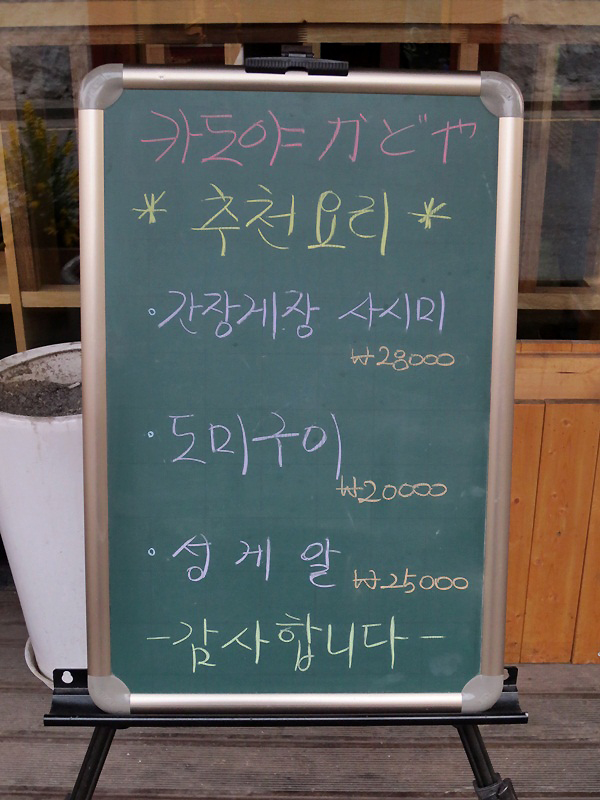 카도야 かどや
* 추천요리 *
· 간장게장 사시미
₩28000
· 도미구이
₩20000
· 성게알 ₩25000
- 감사합니다 -